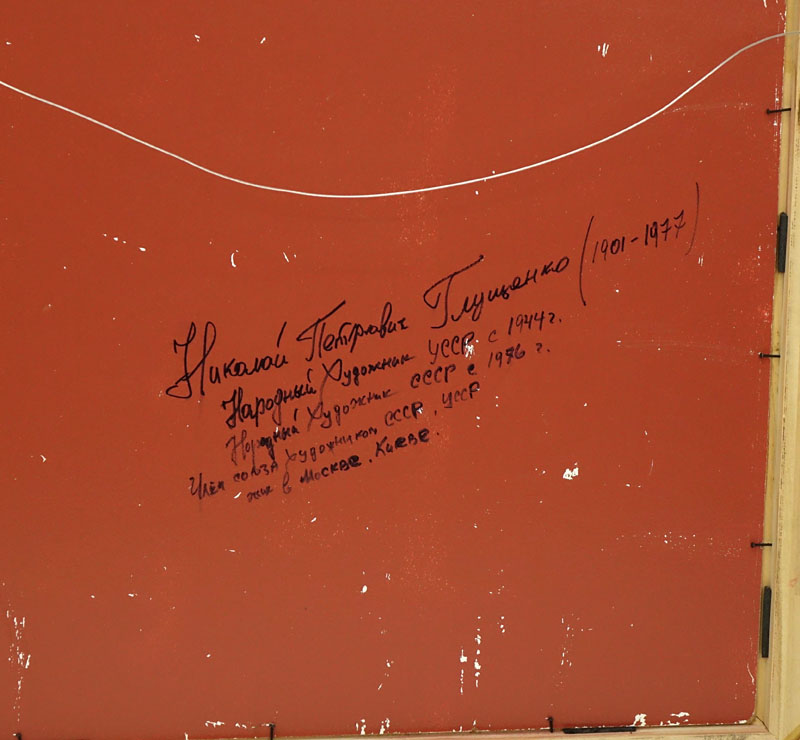 Николай Петрович Глущенко (1901-1977)
Народный Художник УССР с 1944г.
Народный Художник СССР с 1976 г.
Член союза художников СССР, УССР
жил в Москве, Киеве.